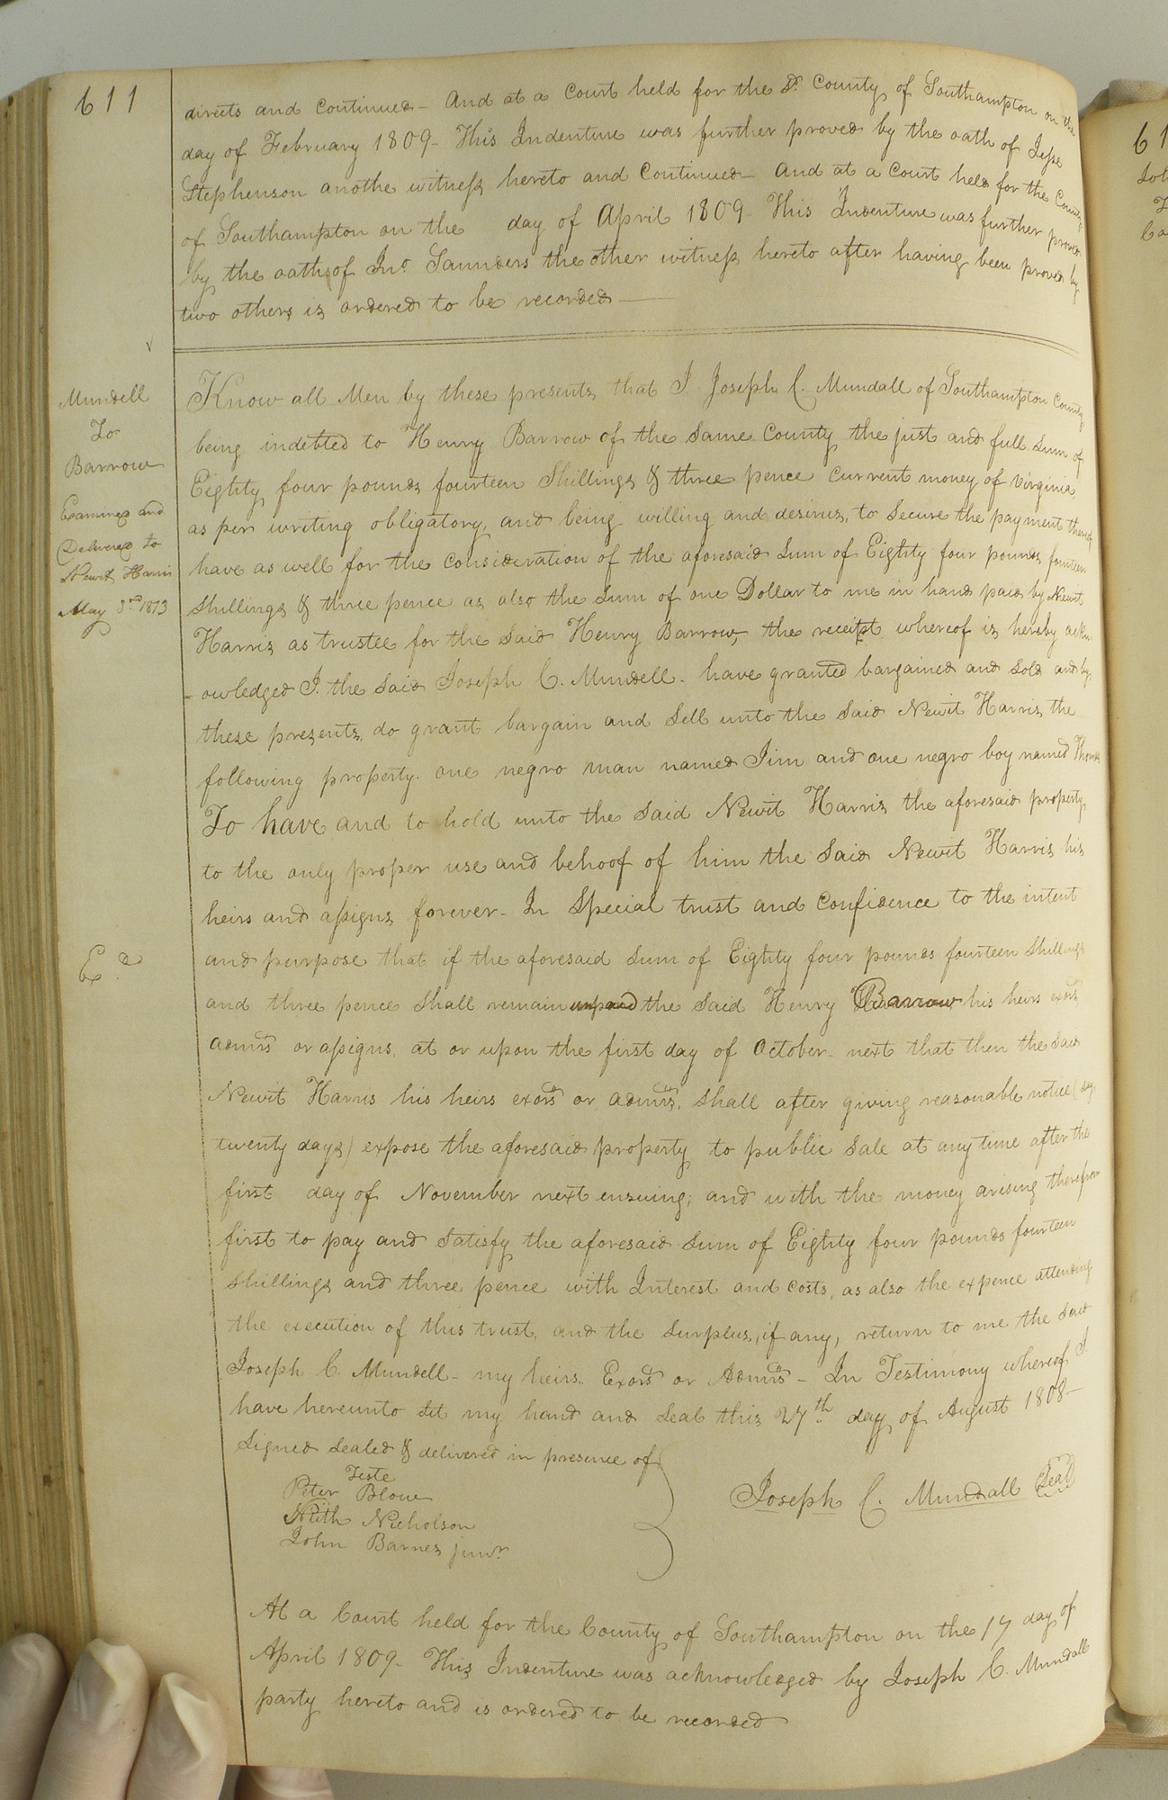 611
directs and continued - And at a Court held for the Sd. County of Southampton on the
day of February 1809 - This Indenture was further proved by the oath of Jesse
Stephenson anothe witness hereto and Continued - And at a Court held for the County
of Southampton on the day of April 1809 - This Indenture was further proved
by the oath of Jno Saunders the other witness hereto after having been proved by
two others is ordered to be recorded
Mundell
To
Barrow
Examined and
Delivered to
Newit Harris
May 3rd 1813
Exd.
Know all Men by these presents, that I Joseph C. Mundall of Southampton County
being indebted to Henry Barrow of the same County the just and full sum of
Eighty four pounds fourteen Shillings & three pence current money of Virginia
as per writing obligatory, and being willing and desirus, to secure the payment thereof
have as well for the consideration of the aforesaid Sum of Eighty four pounds fourteen
Shillings & three pence as also the Sum of one Dollar to me in hand paid by Newit
Harris as trustee for the said Henry Barrow, the receipt whereof is hereby ackn
-owledged I. the said Joseph C. Mundell - have granted bargained and sold and by
these presents, do grant bargain and Sell unto the said Newit Harris, the
following property. one negro man named Jim and one negro boy named Thomas
To have and to hold unto the said Newit Harris the aforesaid property
to the only proper use and behoof of him the said Newit Harris his
heirs and assigns forever - In Special trust and Confidence to the intent
and purpose that if the aforesaid Sum of Eighty four pounds fourteen Shillings
and three pence Shall remain unpaid the said Henry Barrow his heirs exors
admrs or assigns, at or upon the first day of October - next that then the said
Newit Harris his heirs exors or admrs, Shall after giving reasonable notice (say
twenty days) expose the aforesaid property to public Sale at any time after the
first day of November next ensuing; and with the money arising therefrom
first to pay and Satisfy the aforesaid Sum of Eighty four pounds fourteen
Shillings and three pence with Interest and costs, as also the expence attending
the execution of this trust, and the Surplus, if any, return to me the said
Joseph C Mundell - my heirs. Exors or Admrs - In Testimony whereof I
have hereunto Set my hand and Seal this 27th day of August 1808 -
Signed Sealed & delivered in presence of
Teste
Peter Blow
Joseph C. Mundall Seal
Nicholson
John Barnes junr
At a Court held for the County of Southampton on the 17 day of
April 1809 - This Indenture was acknowledged by Joseph C. Mundall
party hereto and is ordered to be recorded